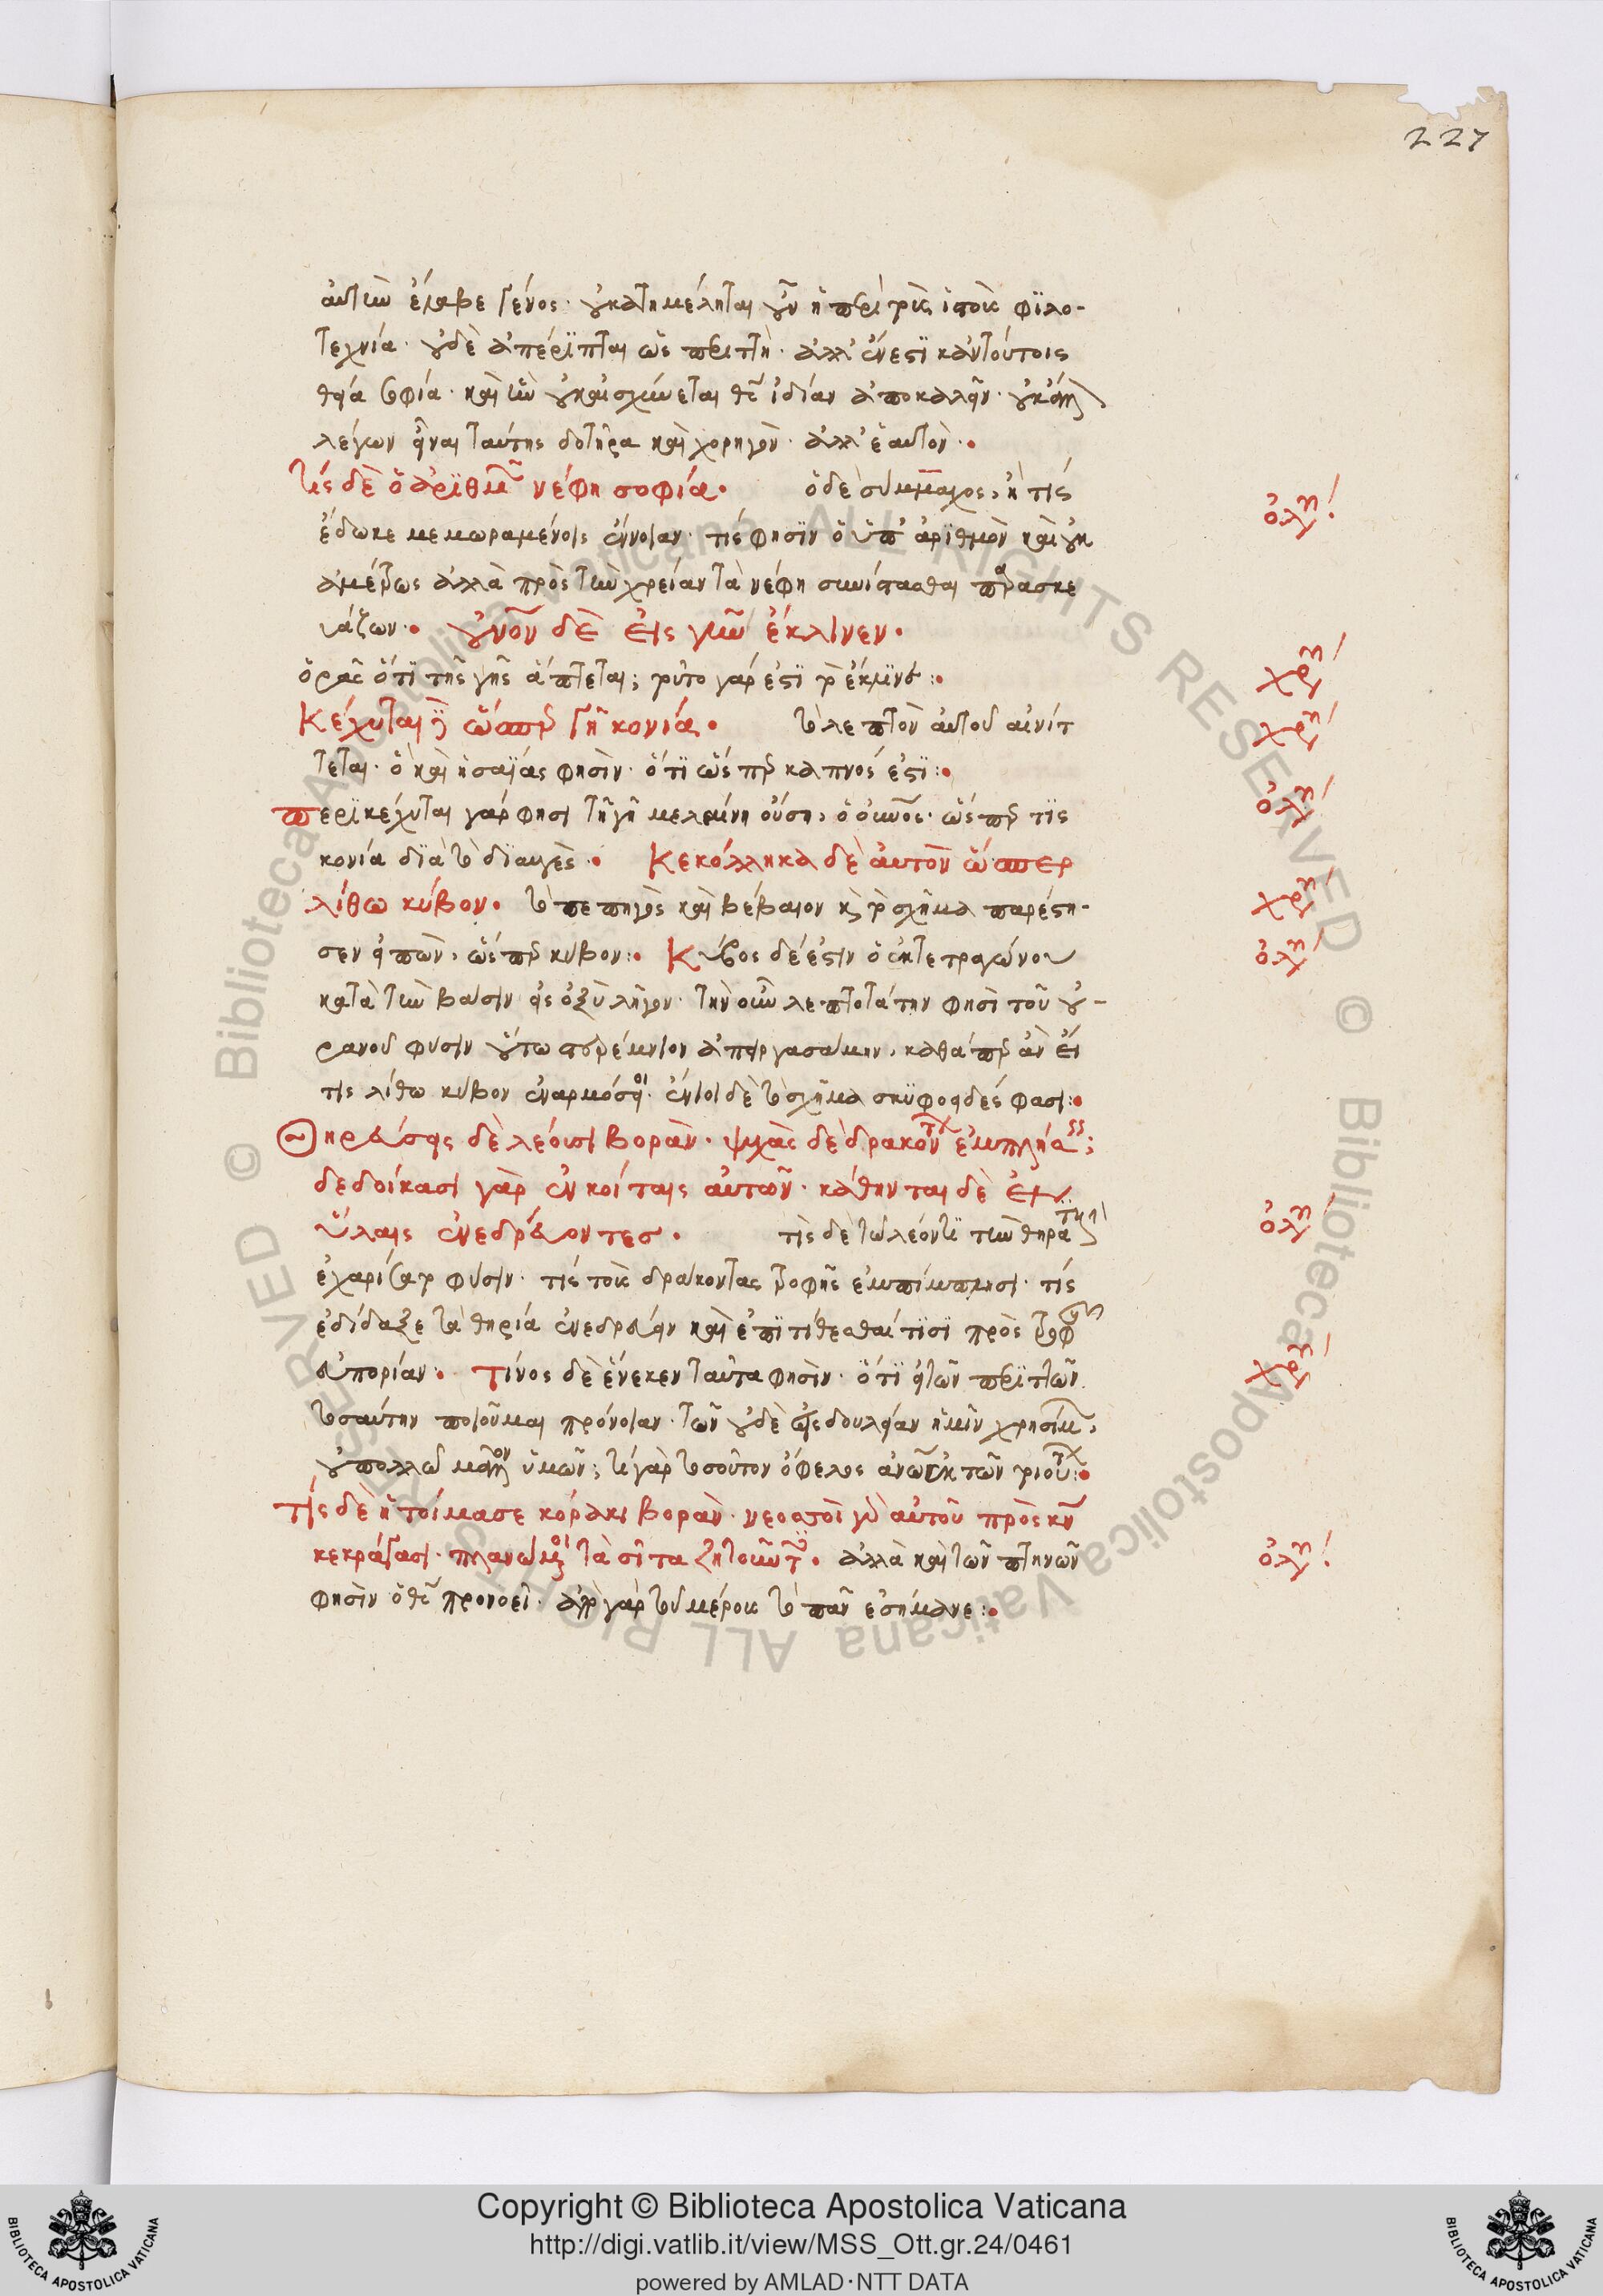 227
αὐτὴν ἔλαβε γένος· οὐκ ἀτημέλητος οὖν ἡ περὶ τοὺς ἱστοὺς φιλο-
τεχνία· οὐδὲ ἀπέριπται ὡς περιττὴ· ἀλλ' ἔνεστι κἀν τούτοις
θεία σοφία· καὶ ἣν οὐκ αἰσχύνεται θς ἰδίαν ἀποκαλεῖν· οὐκ ἄλλ
λέγων εἶναι ταύτης δοτῆρα καὶ χορηγὸν· ἀλλ' ἑαυτὸν·
τίς δὲ ὁ ἀριθμῶν νέφη σοφία· ὁ δὲ σύμμαχος, ἢ τίς
ὀλυ
ἔδωκε μεμωραμένοις ἔννοιαν· τίς φησϊν ὁ ὑπ' ἀριθμὸν καὶ οὐκ
ἀμέτρως ἀλλὰ πρὸς τὴν χρείαν τὰ νέφη συνίστασθαι παρασκε
υάζων· οὐνὸν δὲ εἰς γῆν ἔκλινεν·
ὁρᾶς ὅτϊ τῆς γῆς ἅπτεται; τοῦτο γάρ ἐστϊ τὸ ἔκλινε:
χρυ
Κέχυται δὲ ὥσπερ γῆ κονία· τὸ λεπτὸν αὐτοῦ αἰνίτ
χρυ
τεται· ὃ καὶ ἡσαΐας φησὶν· ὅτϊ ὥσπερ καπνός ἐστϊ:
περϊκέχυται γάρ φησι τῆ γῆ μελαίνη οὔση, ὁ οὐνος· ὥσπερ τϊς
ὀλυ
κονία δϊὰ τὸ δϊαυγὲς· Κεκόλληκα δὲ αὐτὸν ὥσπερ
λίθω κύβον· τὸ πεπηγὸς καὶ βέβαιον κὶ τὸ σχῆμα παρέστη-
χρυ
σεν εἰπὼν, ὥσπερ κύβον: Κύβος δέ ἐστιν ὁ ἐκ τετραγώνου
ὀλυ
κατὰ τὴν βάσιν εἰς ὀξὺ λῆγον· τὴν οὖν λεπτοτάτην φησὶ τοῦ οὐ-
ρανοῦ φύσιν οὕτω στερέμνιον ἀπειργασάμην, καθάπερ ἂν εἴ
τις λίθω κύβον ἐναρμόσει· ἔνιοι δὲ τὸ σχῆμα σκϋφοειδές φασι:
Θηρεύσεις δὲ λέουσι βορὰν· ψυχὰς δὲ δρακόντ ἐμπλήσ;
δεδοίκασι γὰρ ἐν κοίταις αὐτῶν· κάθηνται δὲ ἐν
ὕλαις ἐνεδρεύοντες· τίς δὲ τῶ λέοντϊ τὴν θηρατικ
ὀλυ
ἐχαρίσατο φύσιν· τίς τοὺς δράκοντας τροφῆς ἐμπίμπλησι· τίς
ἐδίδαξε τὰ θηρία ἐνεδρεύειν καὶ ἐπϊτίθεσθαί τϊσϊ πρὸς τροφ
εὐπορίαν· Τίνος δὲ ἕνεκεν ταῦτα φησὶν· ὅτϊ εἰ τῶν περϊττῶν
χρυ
τοσαύτην ποιοῦμαι πρόνοιαν· τῶν οὐδὲ εἰς δουλείαν ἡμῖν χρησίμ,
οὐ πολλῶ μᾶλλον ὑμῶν; τί γὰρ τοσοῦτον ὄφελος ἀνων ἐκ τῶν τοιούτ:
Τίς δὲ ἡτοίμασε κόρακι βορὰν· νεοσσοὶ γὰρ αὐτοῦ πρὸς κν
κεκράγασι· πλανώμενοι τὰ σῖτα ζητοῦντ· ἀλλὰ καὶ τῶν πτηνῶν
ὀλυ
φησὶν ὁ θς προνοεῖ· ἀπὸ γὰρ τοῦ μέρους τὸ πᾶν ἐσήμανε:
Copyright © Biblioteca Apostolica Vaticana
http://digi.vatlib.it/view/MSS_Ott.gr.24/0461
powered by AMLAD·NTT DATA